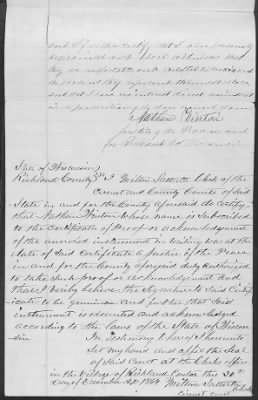 and I further certify that I am personally
acquainted with said witnesses that
they are respectable and entitled to credit
and that I am
in prosecuting
Nathan Hinton
Justice of the Peace in and
for Richland Co. Wisconsin
State of Wisconsin
Richland County I Milton Satterlee Clerk of the
Circuit and County Courts of Said
State in and for the County aforesaid do certify
that Nathan Hinton whose name is subscribed
to the Certificate of Proof or acknowledgement
of the annexed instrument in writing was at the
date of Said Certificate a Justice of the Peace
in and for the County aforesaid duly authorized
to take such proof or acknowledgement and
that I verily believe the signature to Said Certif
icate to be genuine and further that Said
instrument is executed and acknowledged
according to the laws of the State of Wiscon
sin In Testimony Whereof I hereunto
Set my hand and affix the Seal
of Said Court at the Clerks office
in the Village of Richland Center this
day of December AD 1864 Milton Satterlee
Circuit Court